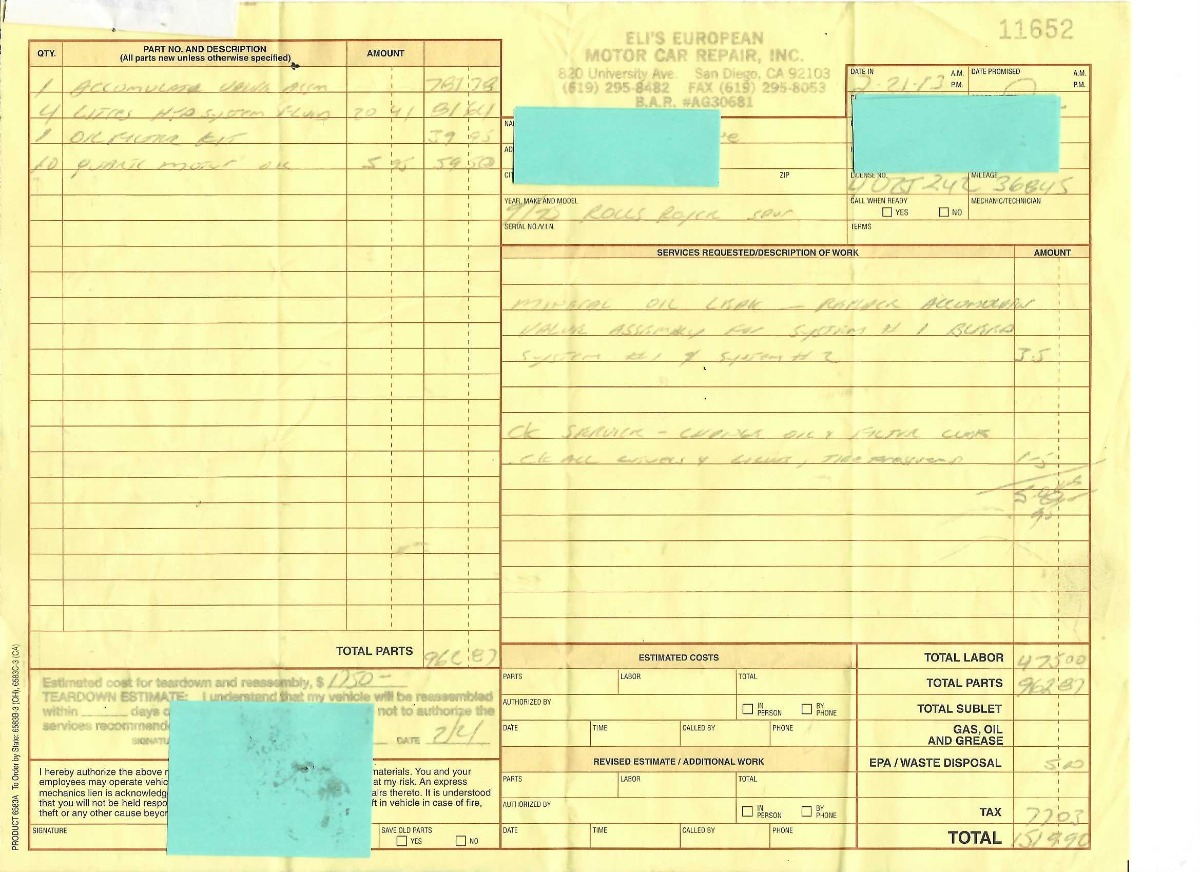 11652
ELI'S EUROPEAN
MOTOR CAR REPAIR, INC.
820 University Ave. San Diego, CA 92103
(619) 295-8482 FAX (619) 295-8053
B.A.R. #AG30681
QTY. PART NO. AND DESCRIPTION AMOUNT
(All parts new unless otherwise specified)
1 ACCUMULATOR VALVE ASSM 781 78
4 LITRES HYD SYSTEM FLUID 20 41 81 64
1 OIL FILTER KIT 39 95
10 QUARTS MOTOR OIL 5 95 59 50
TOTAL PARTS 962 87
DATE IN A.M. P.M. DATE PROMISED A.M. P.M.
2-21-13
ZIP
LICENSE NO. MILEAGE
36845
YEAR, MAKE AND MODEL
ROLLS ROYCE SPUR
CALL WHEN READY YES NO
MECHANIC/TECHNICIAN
SERIAL NO./V.I.N.
TERMS
SERVICES REQUESTED/DESCRIPTION OF WORK AMOUNT
MINERAL OIL LEAK - REPLACE ACCUMULATOR
VALVE ASSEMBLY FOR SYSTEM # 1 BLEED
SYSTEM #1 & SYSTEM # 2 3.5
SERVICE - CHANGE OIL & FILTER LUBE
CK ALL LEVELS & LIGHTS, TIRE PRESSURES 1.5
Estimated cost for teardown and reassembly, $ 1750-
TEARDOWN ESTIMATE: I understand that my vehicle will be reassembled
within days not to authorize the
services
DATE 2/21
I hereby authorize the above materials. You and your
employees may operate at my risk. An express
mechanics lien is thereto. It is understood
that you will not be held in vehicle in case of fire,
theft or any other cause
SIGNATURE
SAVE OLD PARTS
YES NO
ESTIMATED COSTS
PARTS LABOR TOTAL
AUTHORIZED BY IN PERSON BY PHONE
DATE TIME CALLED BY PHONE
REVISED ESTIMATE / ADDITIONAL WORK
PARTS LABOR TOTAL
AUTHORIZED BY IN PERSON BY PHONE
DATE TIME CALLED BY PHONE
TOTAL LABOR 475 00
TOTAL PARTS 962 87
TOTAL SUBLET
GAS, OIL
AND GREASE
EPA / WASTE DISPOSAL 5.00
TAX 77 03
TOTAL 1519.90
PRODUCT 6583A To Order by State: 6583B-3 (OH), 6583C-3 (CA)